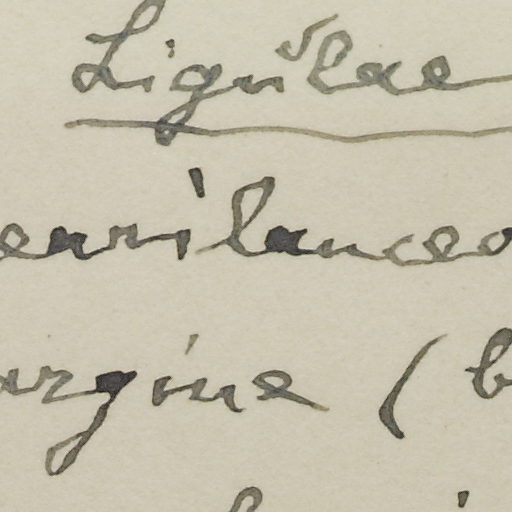 Ligulae
earilanceo
argine (b